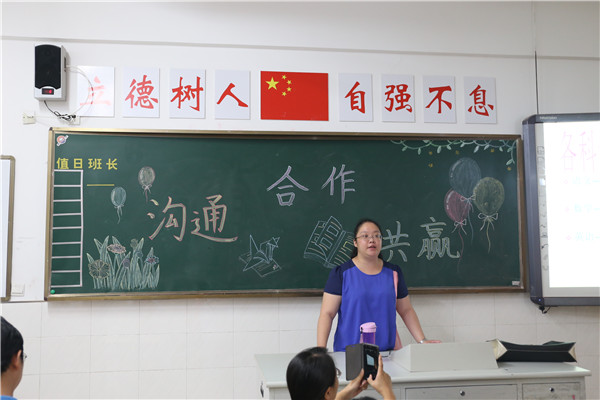 立德树人 自强不息
值日班长
沟通 合作 共赢
各科